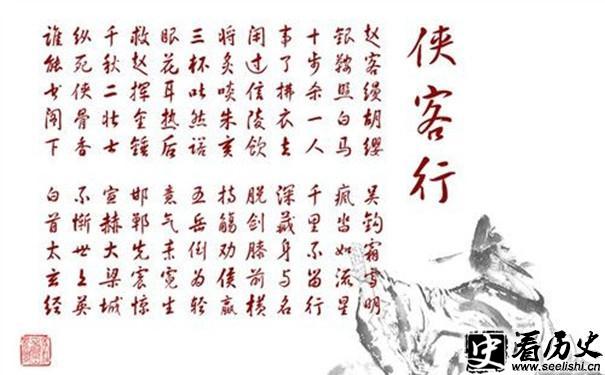 侠客行
赵客缦胡缨 吴钩霜雪明
银鞍照白马 飒沓如流星
十步杀一人 千里不留行
事了拂衣去 深藏身与名
闲过信陵饮 脱剑膝前横
将炙啖朱亥 持觞劝侯嬴
三杯吐然诺 五岳倒为轻
眼花耳热后 意气素霓生
救赵挥金锤 邯郸先震惊
千秋二壮士 宣赫大梁城
纵死侠骨香 不惭世上英
谁能书阁下 白首太玄经
史 看历史
www.seelishi.cn